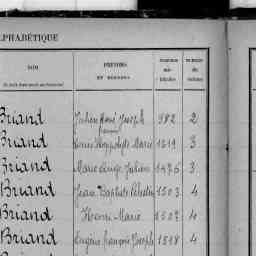 ALPHABÉTIQUE
NOM
PRÉNOMS
ET SURNOMS
NUMÉROS
NUMÉROS
Briand Julien René Joseph 982 2
Briand Louis Hippolyte Marie 1219 3
Briand Marie Ange Julien 1476 3
Briand Jean Baptiste Célestin 1503 4
Briand Henri Marie 1507 4
Briand Eugène François Joseph 1518 4